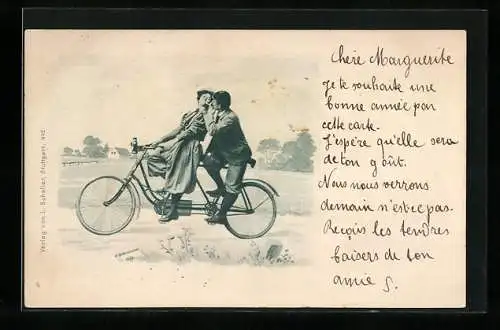 Chère Marguerite
Je te souhaite une
bonne année par
cette carte.
J'espère qu'elle sera
de ton goût.
Nous nous verrons
demain n'est-ce pas.
Reçois les tendres
baisers de ton
amie S.
Verlag von L. Schaller, Stuttgart,